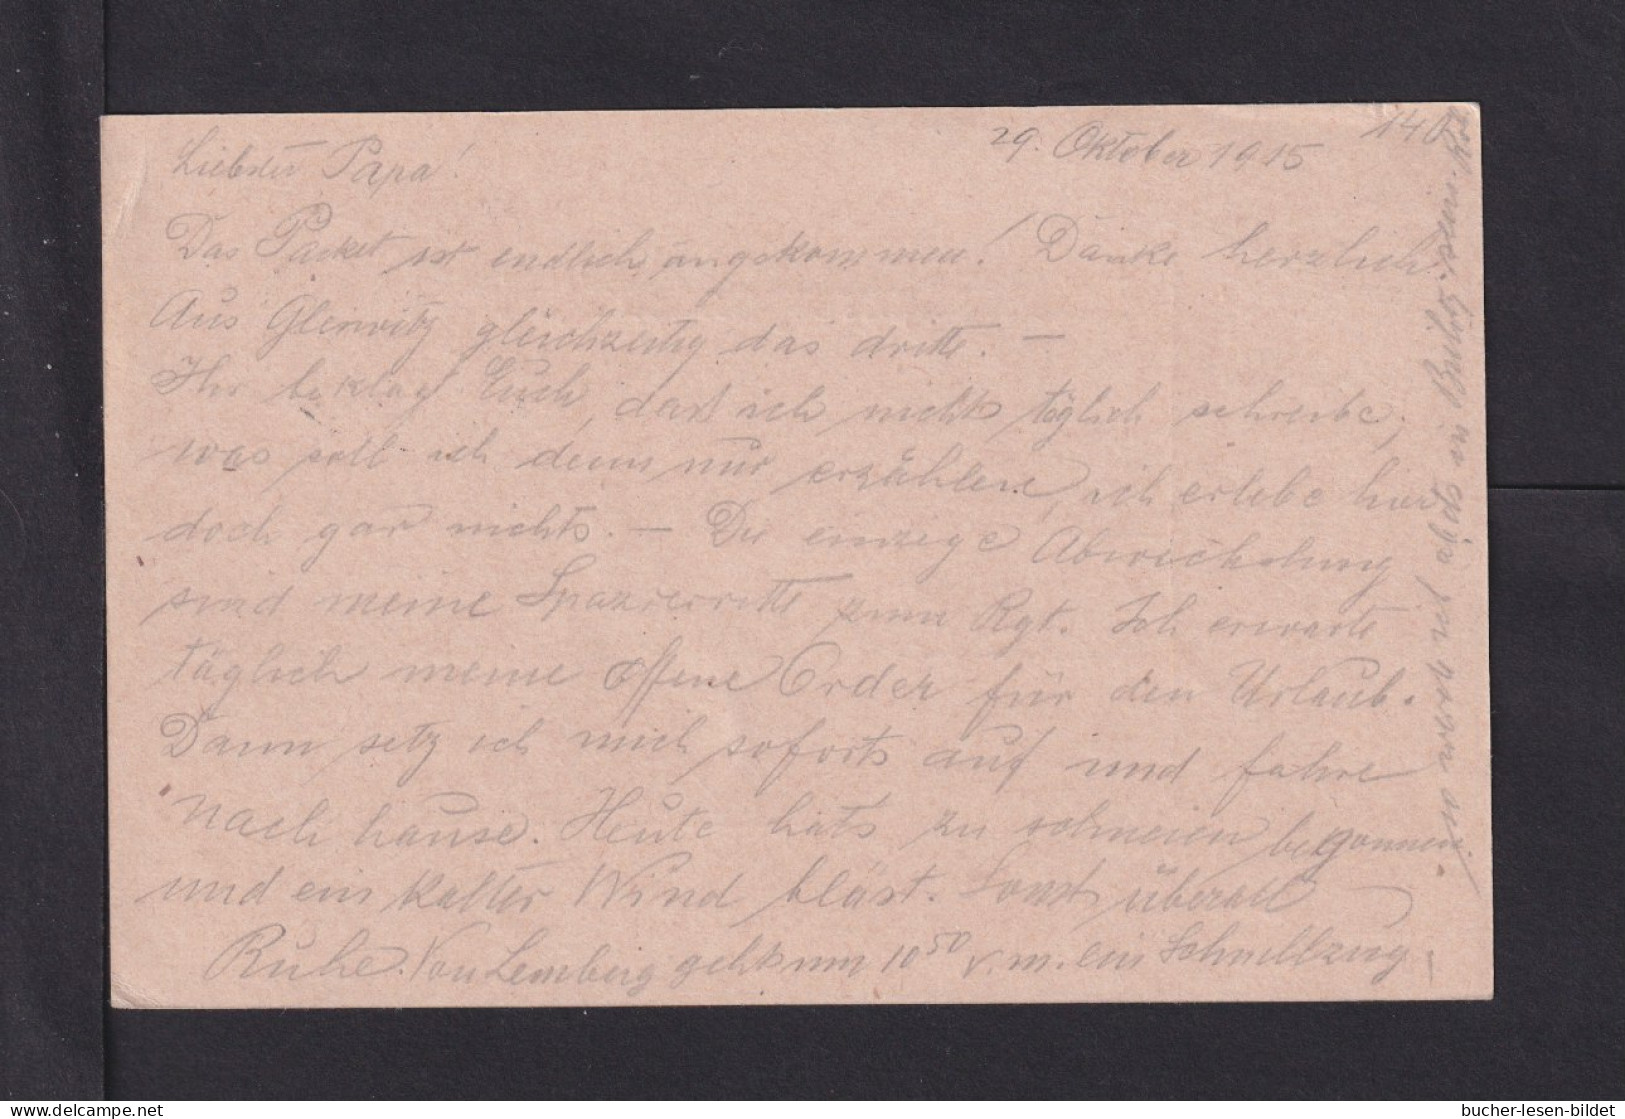 29. Oktober 1915
140
Liebster Papa!
Das Packet ist endlich angekommen! Danke herzlich.
Aus Gleiwitz gleichzeitig das dritte. —
Ihr beklagt Euch, daß ich nicht täglich schreibe,
was soll ich denn nur erzählen, ich erlebe hier
doch gar nichts. — Die einzige Abwechslung
sind meine Spazierritte zum Rgt. Ich erwarte
täglich meine offene Order für den Urlaub.
Dann setz ich mich sofort auf und fahre
nach hause. Heute hats zu schneien begonnen
und ein kalter Wind bläst. Sonst überall
Ruhe. Von Lemberg geht um 10 50 v. m. ein Schnellzug
bucher-lesen-bildet